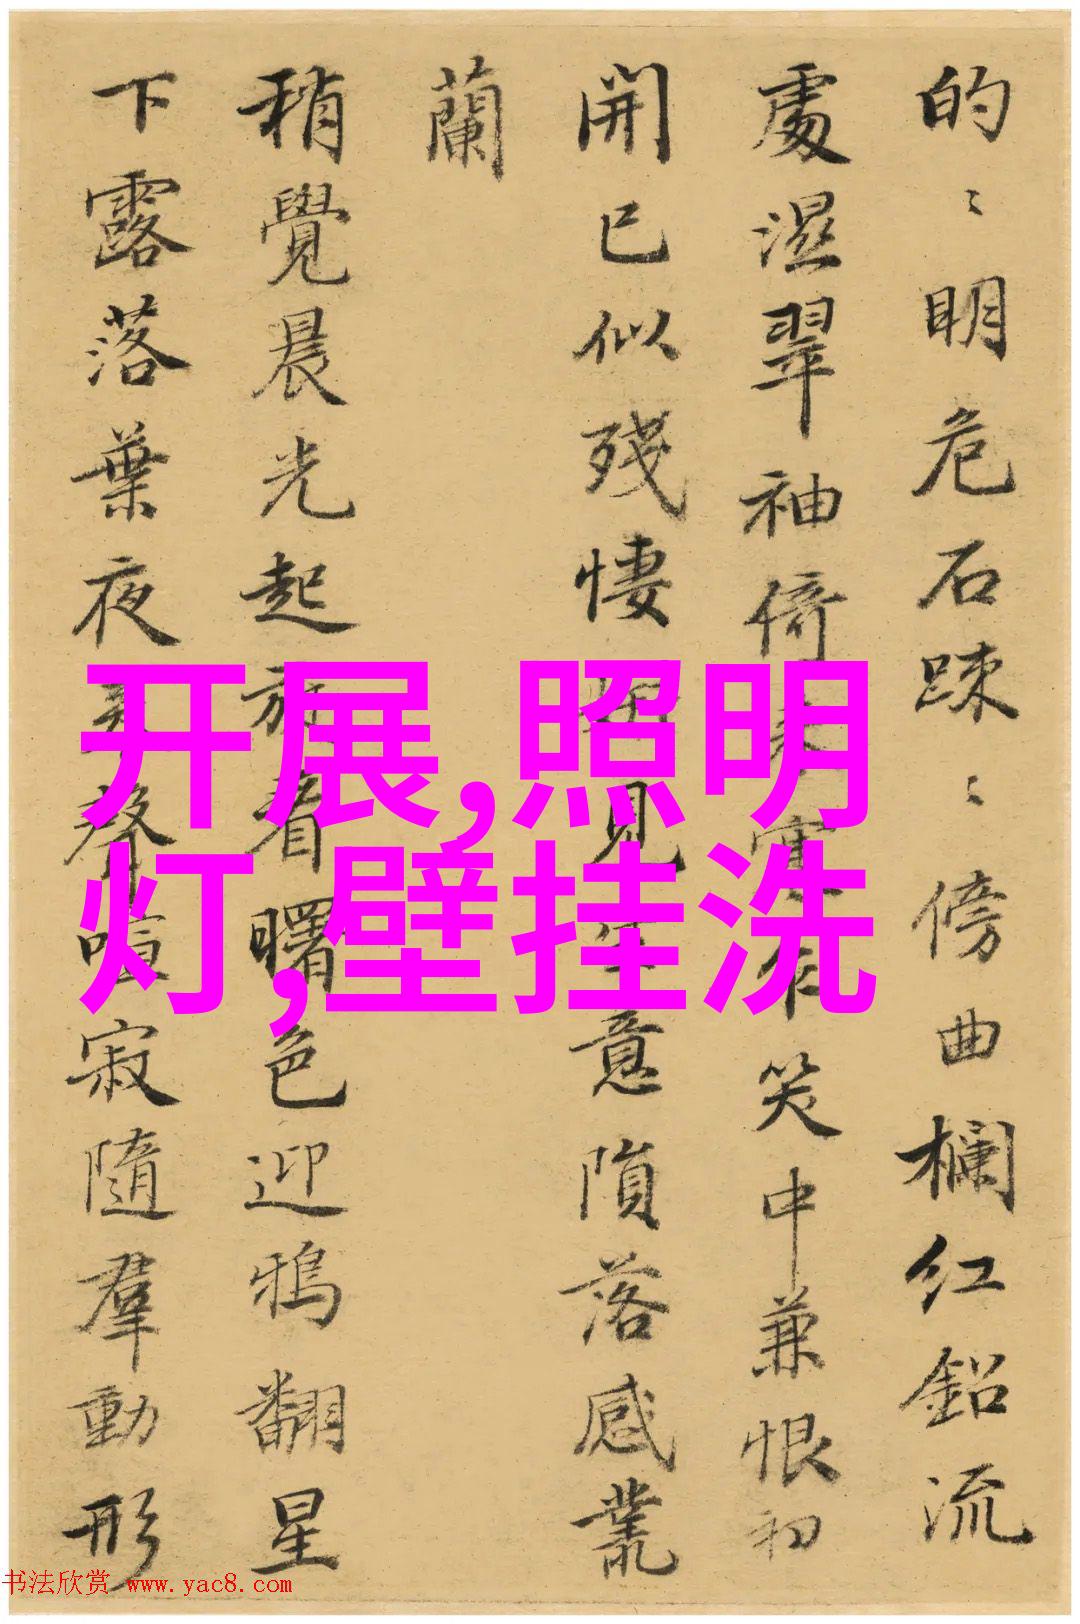 的〻明危石踈〻傍曲欄红鉛流
處濕翠袖倚寒笑中兼恨初
開已似残悽見意隕落感叢
蘭
稍覺晨光起看曙色迎鸦翻星
下露落葉夜聲喧寂隨羣動形
开展,照明
灯,壁挂洗
书法欣赏 www.yac8.com